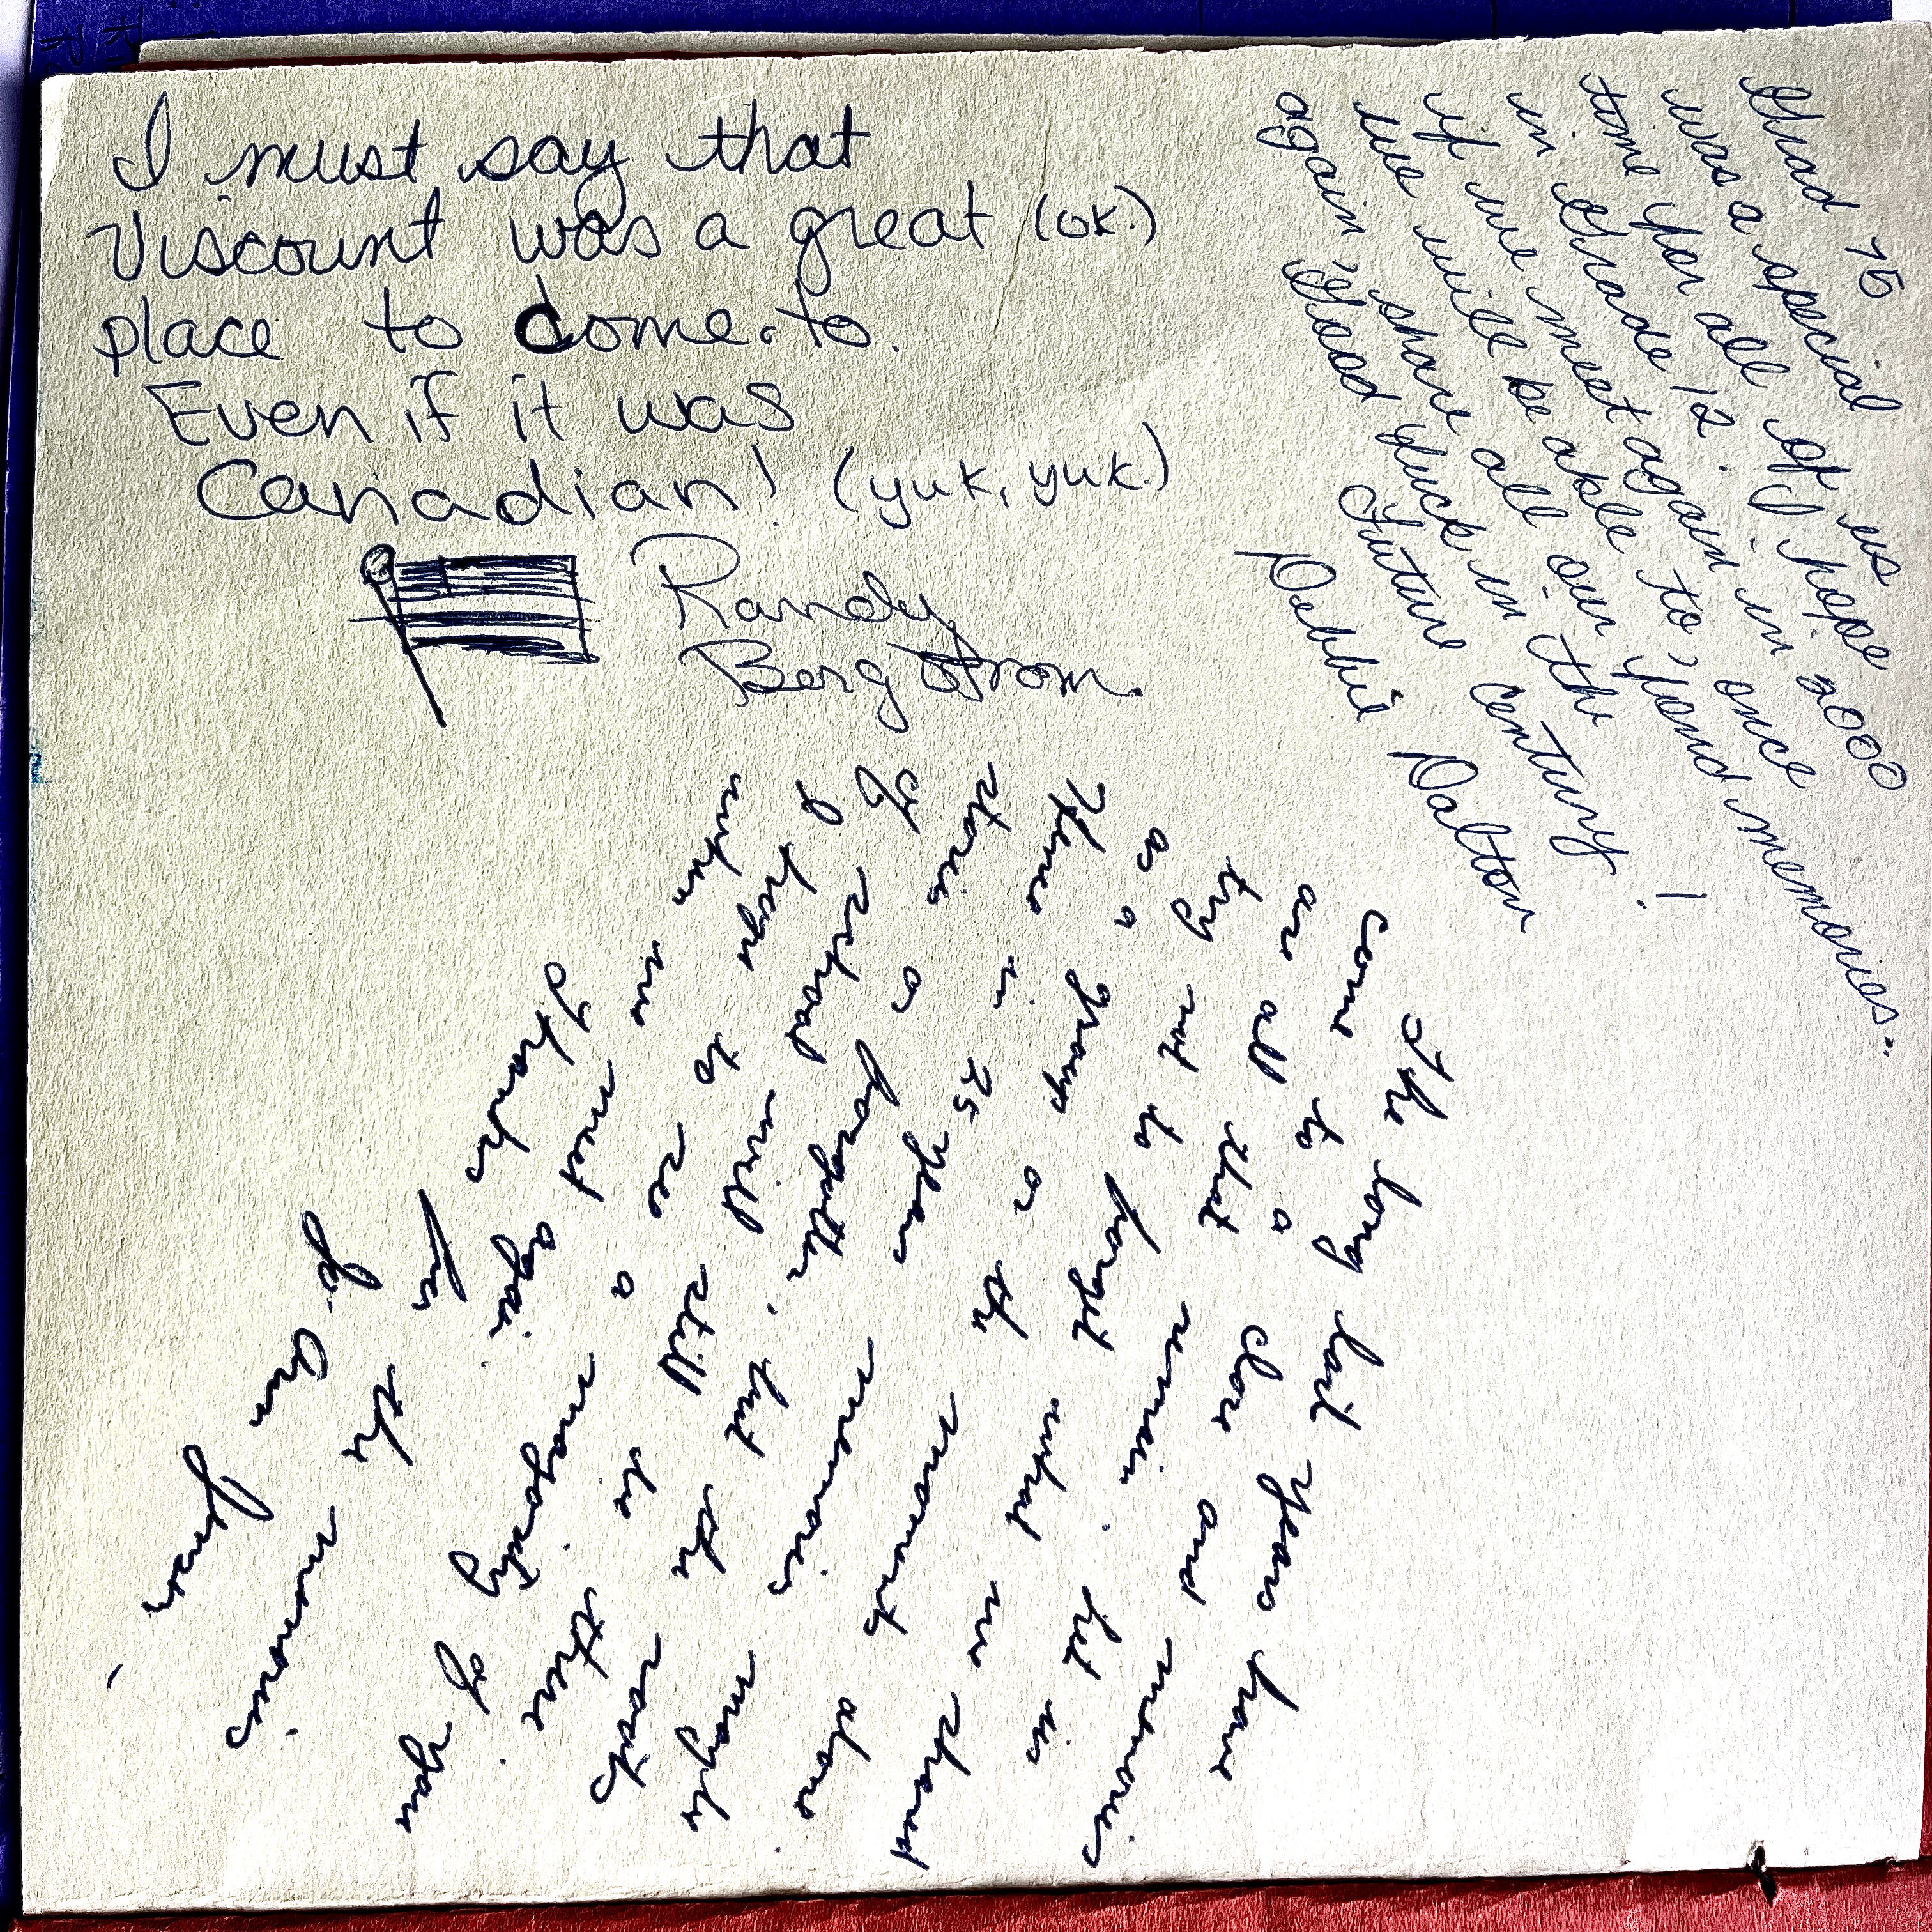 I must say that
Viscount was a great (ok.)
place to come to.
Even if it was
Canadian! (yuk, yuk.)
Randy
Bergstrom.
Grad 75
was a special
time for all of us
in Grade 12. I hope
if we meet again in 2000
we will be able to, once
again, share all our fond memories.
Good Luck in the
Future Century!
Debbie Dalton
The long last years have
come to a close and memories
are all that remain. Let us
try not to forget what we shared
as a group or the moments alone.
Hence in 25 years memories maybe
stories or forgotten, but the roots
of school will still be there.
I hope to see a majority of you
when we meet again.
Thanks for the memories
Jo-Ann